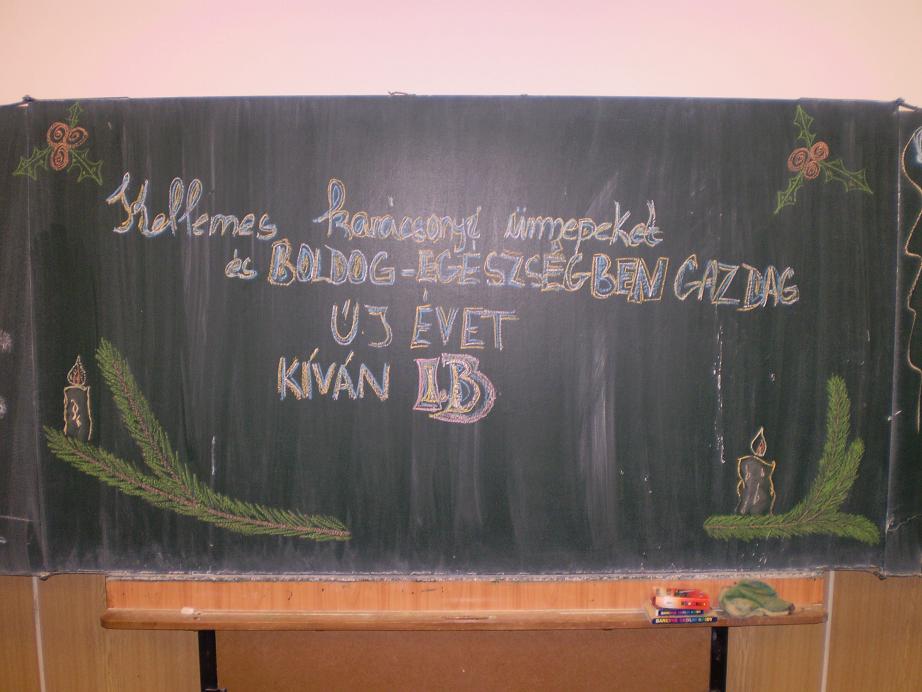 Kellemes karácsonyi ünnepeket
és BOLDOG-EGÉSZSÉGBEN GAZDAG
ÚJ ÉVET
KÍVÁN I.B